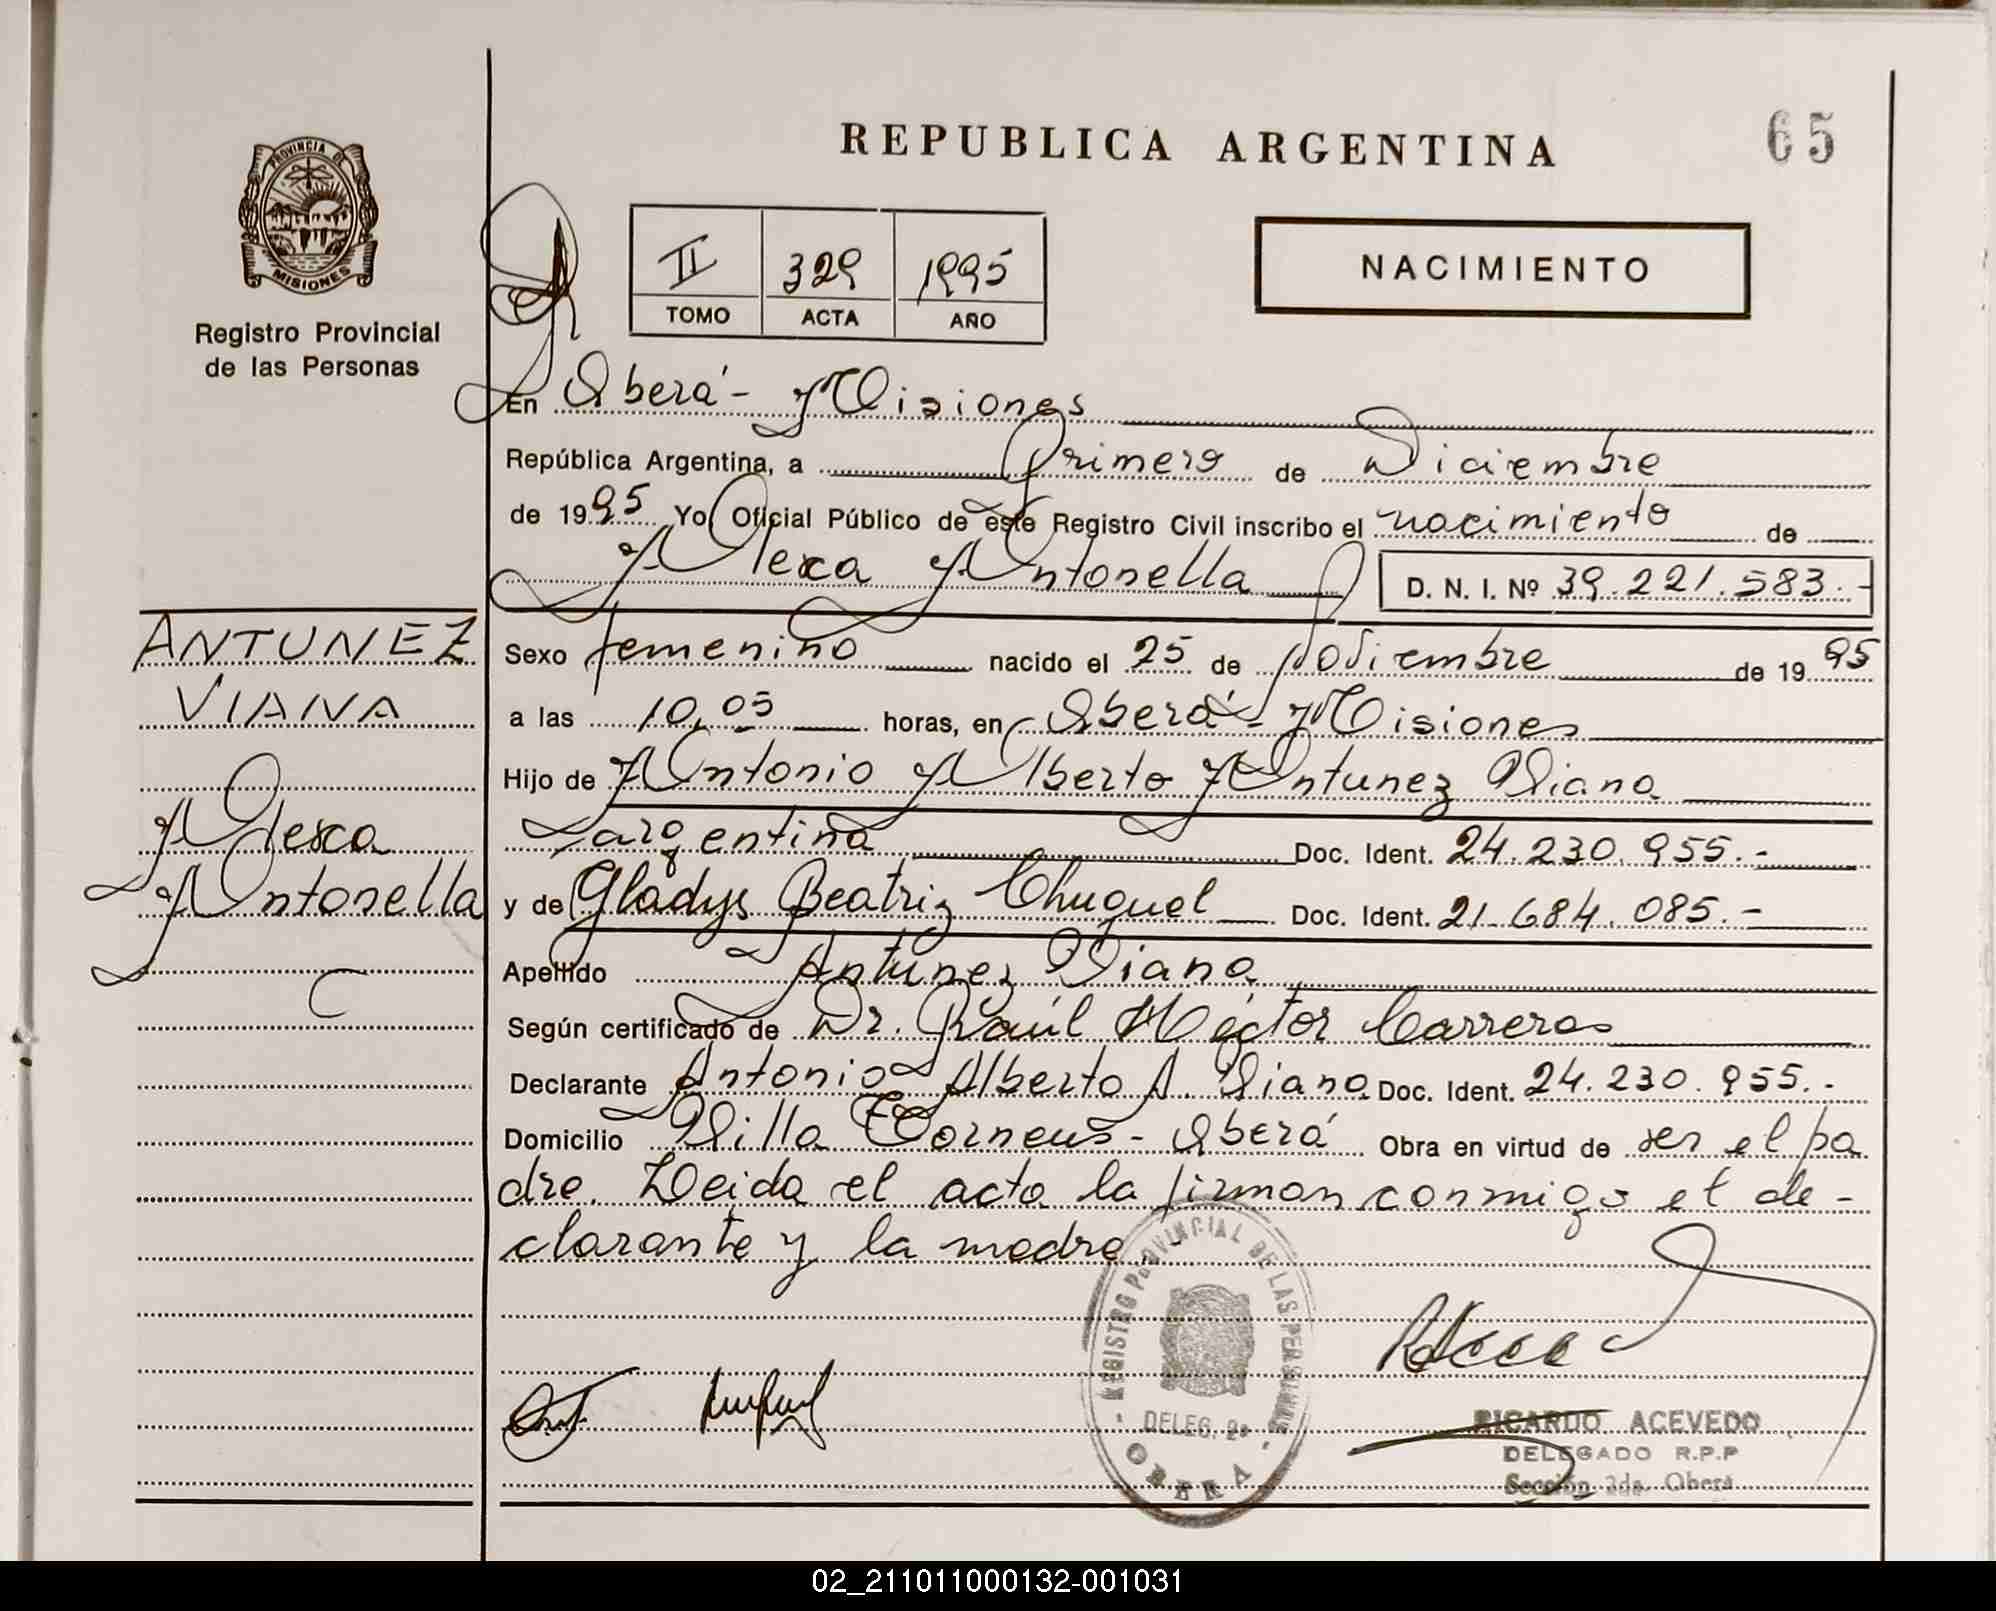 REPUBLICA ARGENTINA
65
PROVINCIA DE
MISIONES
Registro Provincial
de las Personas
II 329 1995
TOMO ACTA AÑO
NACIMIENTO
En Oberá - Misiones
República Argentina, a Primero de Diciembre
de 1995 Yo Oficial Público de este Registro Civil inscribo el nacimiento de
Alexa Antonella D. N. I. Nº 39.221.583.-
ANTUNEZ
VIANA
Alexa
Antonella
Sexo femenino nacido el 25 de Noviembre de 1995
a las 10,05 horas, en Oberá - Misiones
Hijo de Antonio Alberto Antunez Viana
argentina Doc. Ident. 24.230.955.-
y de Gladys Beatriz Chuquel Doc. Ident. 21.684.085.-
Apellido Antunez Viana
Según certificado de Dr. Raúl Héctor Carreras
Declarante Antonio Alberto A. Viana Doc. Ident. 24.230.955.-
Domicilio Villa Torneus - Oberá Obra en virtud de ser el pa
dre. Leida el acta la firman conmigo el de-
clarante y la madre.-
REGISTRO PROVINCIAL DE LAS PERSONAS
DELEG. 2ª
OBERA
RICARDO ACEVEDO
DELEGADO R.P.P
Sección 2da. Oberá
02_211011000132-001031